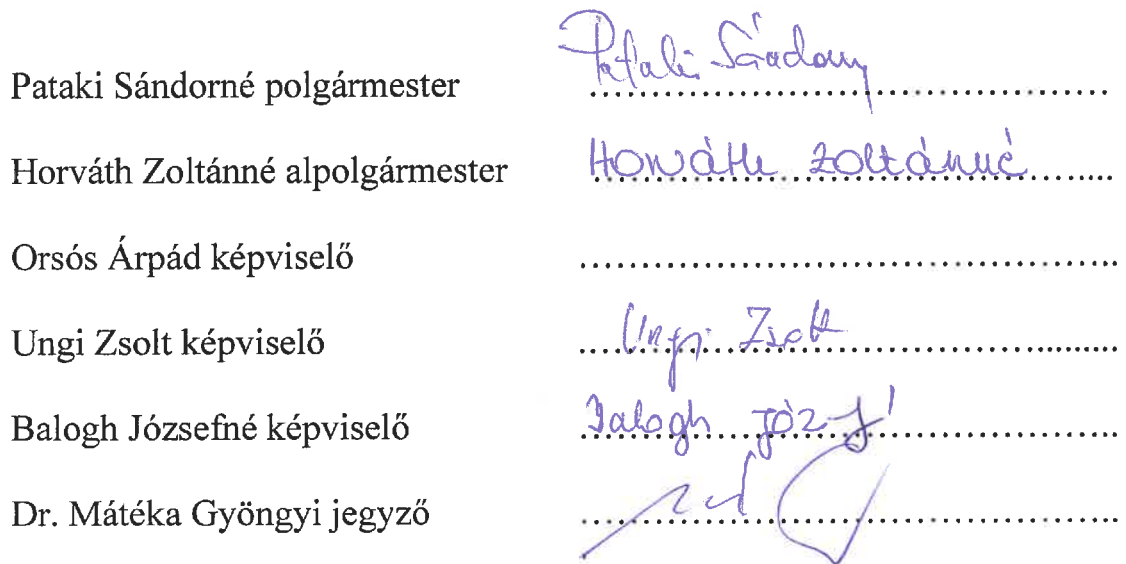 Pataki Sándorné polgármester Pataki Sándorn
Horváth Zoltánné alpolgármester Horváth Zoltánné
Orsós Árpád képviselő ........................................
Ungi Zsolt képviselő Ungi Zsolt
Balogh Józsefné képviselő Balogh Józsf
Dr. Mátéka Gyöngyi jegyző